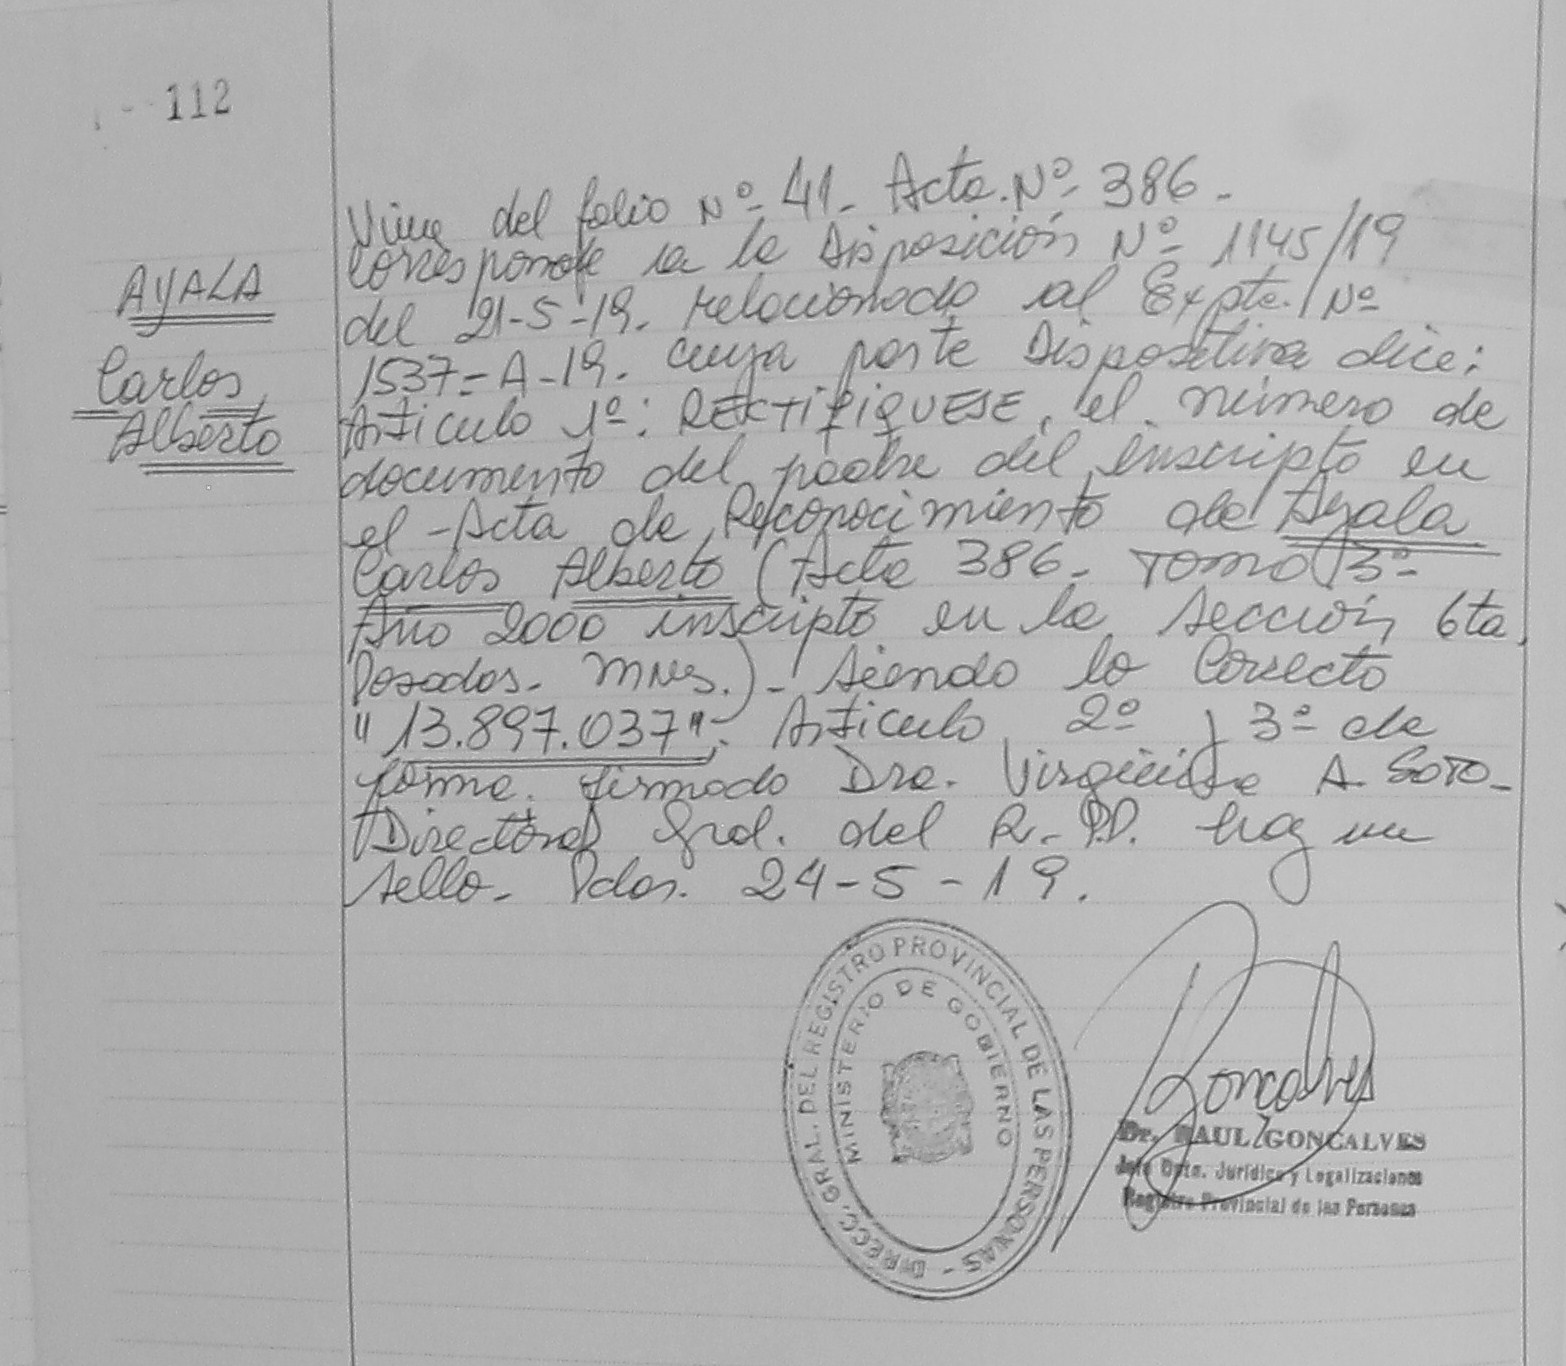 112
AYALA
Carlos
Alberto
Viene del folio Nº 41- Acta. Nº 386-
Corresponde a la Disposición Nº 1145/19
del 21-5-19. relacionado al Expte. Nº
1537-A-19. cuya parte Dispositiva dice:
Articulo 1º: RECTIFIQUESE, el número de
documento del padre del inscripto en
el Acta de Reconocimiento de Ayala
Carlos Alberto (Acta 386- Tomo 3º-
Año 2000 inscripto en la Sección 6ta,
Posadas- Mnes.)- siendo lo Correcto
"13.897.037"-. Articulo 2º y 3º de
forma. firmado Dra. Virginia A. Soto-
Directora Gral. del R.P.P. hay un
sello- Pdas. 24-5-19.
DIRECC. GRAL. DEL REGISTRO PROVINCIAL DE LAS PERSONAS -
MINISTERIO DE GOBIERNO
Goncalves
Dr. RAUL GONCALVES
Jefe Dpto. Jurídico y Legalizaciones
Registro Provincial de las Personas